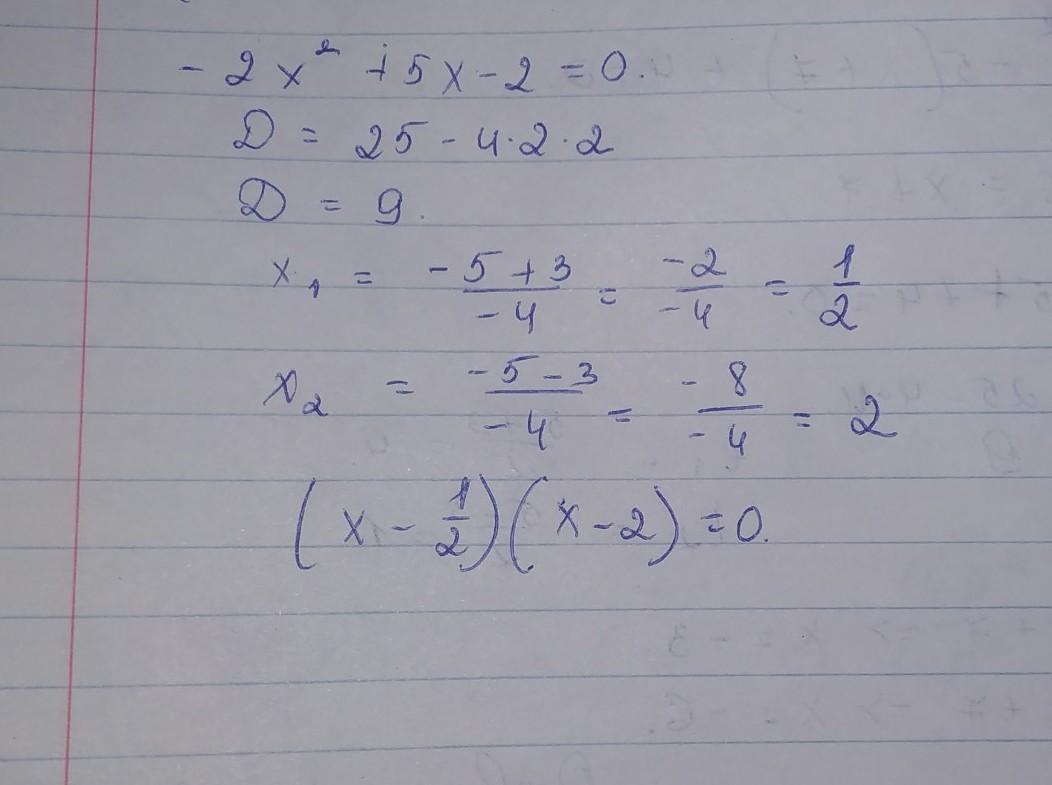 - 2x² + 5x - 2 = 0.
D = 25 - 4·2·2
D = 9.
x₁ = (-5 + 3)/(-4) = (-2)/(-4) = 1/2
x₂ = (-5 - 3)/(-4) = (-8)/(-4) = 2
(x - 1/2)(x - 2) = 0.